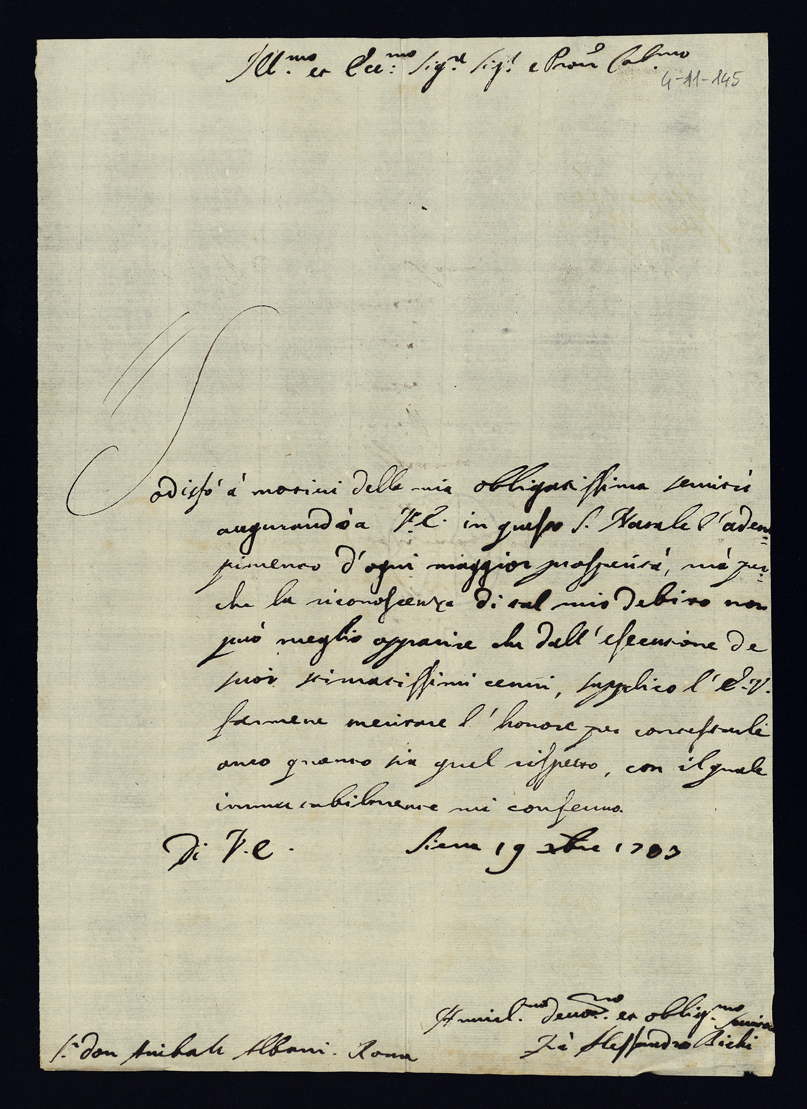 Ill.mo et Ecc.mo Sig.re Sig.r e Pron Col.mo
4-11-145
Sodisfò à motivi della mia obligatissima servitù
augurando à V.E. in questo S. Natale l'adem=
pimento d'ogni maggior prosperità, mà per=
che la riconoscenza di tal mio debito non
può meglio apparire che dall'essecuzione de
suoi stimatissimi cenni, supplico l'E.V.
farmene meritare l'honore per contestarli
anco quanto sia quel rispetto, con il quale
immutabilmente mi confermo.
Di V.E. Siena 19 Xbre 1703
Humil.mo devot.mo et oblig.mo Servitore
S.r don Anibale Albani. Roma
Frà Alessandro Bichi